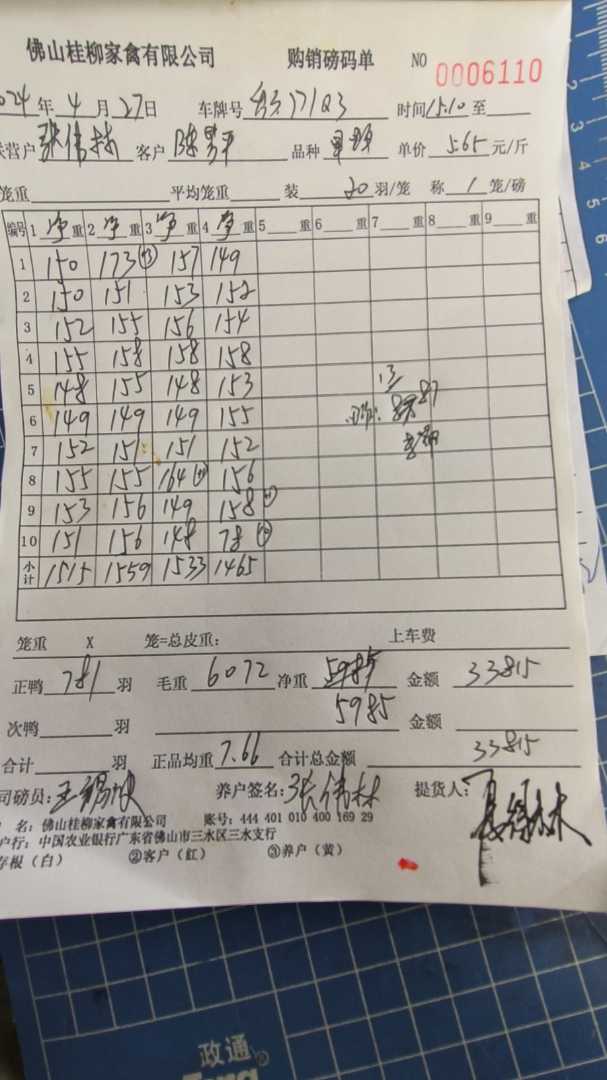 佛山桂柳家禽有限公司 购销磅码单 NO 0006110
024 年 4 月 27 日 车牌号 时间 15.10 至
营户 张伟林 客户 品种 单价 5.65 元/斤
笼重 平均笼重 装 20 羽/笼 称 1 笼/磅
编号 1 净 重 2 净 重 3 净 重 4 净 重 5 重 6 重 7 重 8 重 9 重
1 150 173 (+3) 157 149
2 150 151 153 152
3 152 155 156 154
4 155 158 158 158
5 148 155 148 153 13
6 149 149 149 155 87
7 152 151 151 152
8 155 155 164 156
9 153 156 149 158
10 151 156 148 78
小计 1515 1559 1533 1465
笼重 X 笼=总皮重: 上车费
正鸭 781 羽 毛重 6072 净重 5985 金额 33815
次鸭 羽 5985 金额
合计 羽 正品均重 7.66 合计总金额 33815
司磅员: 养户签名: 张伟林 提货人:
名: 佛山桂柳家禽有限公司 账号: 444 401 010 400 169 29
户行: 中国农业银行广东省佛山市三水区三水支行
存根(白) ②客户(红) ③养户(黄)
政通